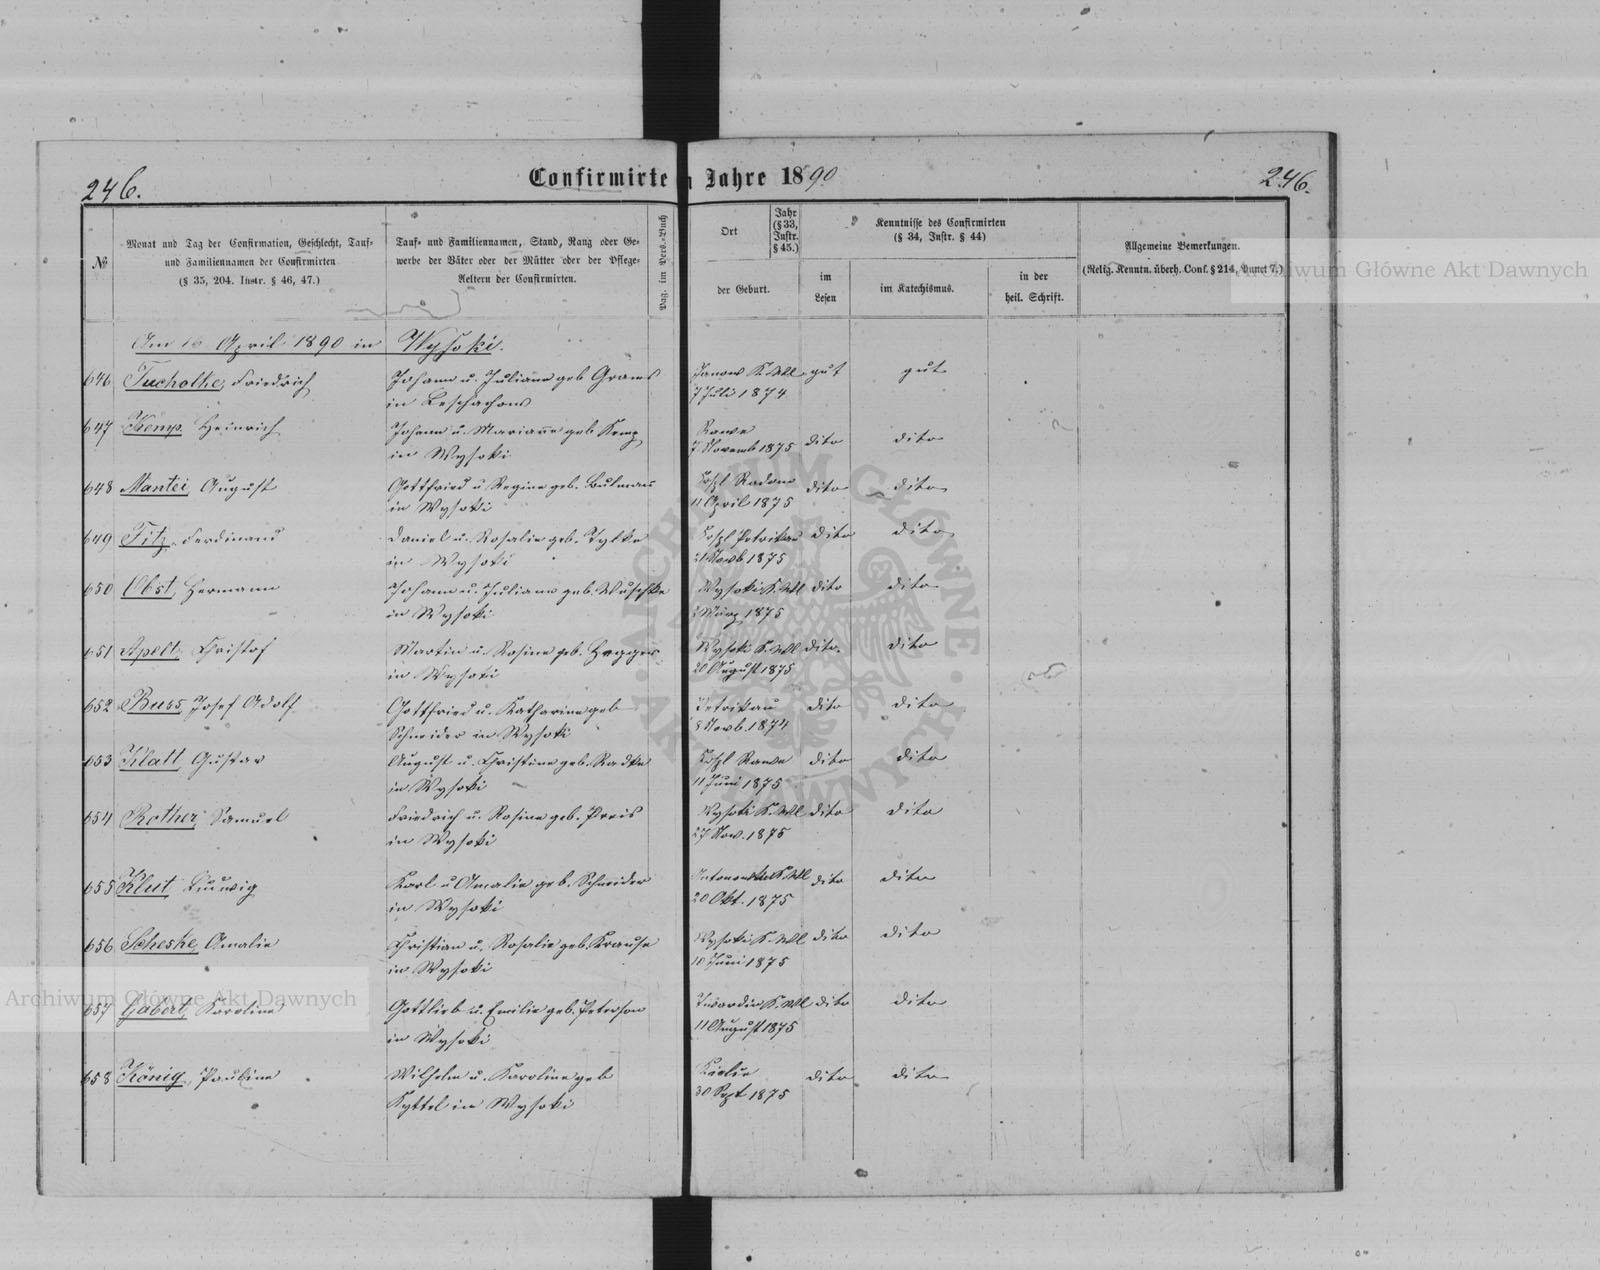 246.
Confirmirte n Jahre 1890
246.
№
Monat und Tag der Confirmation, Geschlecht, Tauf-
und Familiennamen der Confirmirten
(§ 35, 204. Instr. § 46, 47.)
Tauf- und Familiennamen, Stand, Rang oder Ge-
werbe der Väter oder der Mütter oder der Pflege-
Aeltern der Confirmirten.
Pag. im Pers.-Buch
Ort
Jahr
(§ 33,
Instr.
§ 45.)
der Geburt.
Kenntnisse des Confirmirten
(§ 34, Instr. § 44)
im
Lesen
im Katechismus.
in der
heil. Schrift.
Allgemeine Bemerkungen.
(Relig. Kenntn. überh. Conf. § 214, Punct 7.)
Am April 1890 in Wysoki.
646 Tucholke, Friedrich Johann u. Juliane geb Grams Janow K. Wl gut gut
in 7 Juli 1874
647 Kemp. Heinrich Johann u. Marianne geb Kemp Rawe
in Wysoki 7 Novemb 1875 dito dito
648 Mantei August Gottfried u Regine geb. Bulmann Kospl Radom dito dito
in Wysoki 11 April 1875
649 Titz Ferdinand Daniel u. Rosalie geb. Tylke Kospl Petrikau dito dito
in Wysoki 21 Novb 1875
650 Obst, Hermann Johann u. Juliane geb. Wuschke Wysoki K. Wl dito dito
in Wysoki März 1875
651 Apelt, Christof Martin u. Rosine geb. Wysoki K. Wl dito dito
in Wysoki 20 August 1875
652 Buss, Josef Adolf Gottfried u. Katharine geb Petrikau dito dito
Schneider in Wysoki 8 Novb. 1874
653 Klatt, Gustav August u. Christine geb. Radke Kospl Rawe dito dito
in Wysoki 11 Juni 1875
654 Rother, Samuel Friedrich u. Rosine geb. Preis Wysoki K. Wl dito dito
in Wysoki 27 Nov. 1875
655 Klut Ludwig Karl u Amalie geb. Schneider K. Wl dito dito
in Wysoki 20 Okt. 1875
656 Scheske, Amalie Christian u. Rosalie geb. Krause Wysoki K. Wl dito dito
in Wysoki 10 Juni 1875
657 Gabert, Karoline Gottlieb u. Emilie geb. Peterson Twardin K. Wl dito dito
in Wysoki 11 August 1875
658 König, Pauline Wilhelm u. Karoline geb Kielce dito dito
Kyttel in Wysoki 30 Sept 1875
Archiwum Główne Akt Dawnych
Archiwum Główne Akt Dawnych
ARCHIWUM GŁÓWNE AKT DAWNYCH